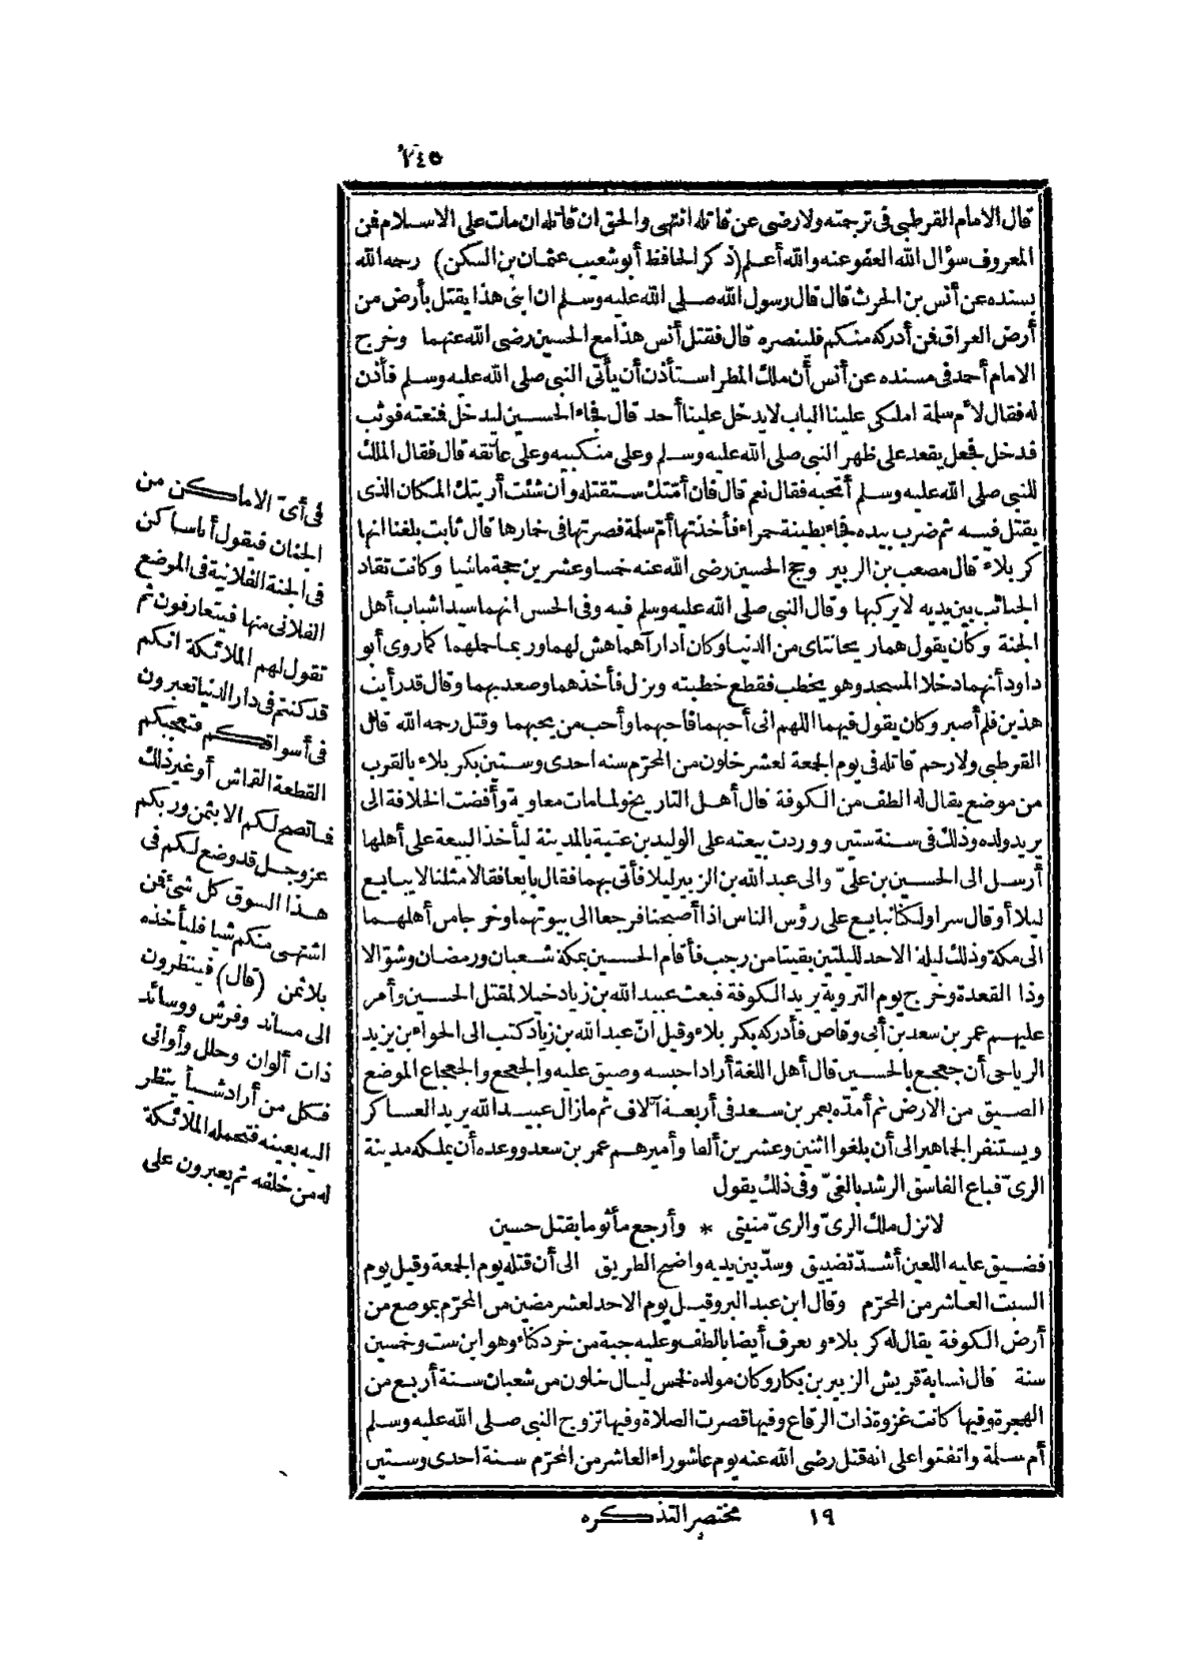 ٢٤٥
قال الامام القرطبى فى ترجمته ولارضى عن قاتله انتهى والحق ان قاتله ان مات على الاسلام فمن
المعروف سؤال الله العفو عنه والله أعلم (ذكر الحافظ أبو شعيب عثمان بن السكن) رحمه الله
بسنده عن أنس بن الحرث قال قال رسول الله صلى الله عليه وسلم ان ابنى هذا يقتل بأرض من
أرض العراق فمن أدركه منكم فلينصره قال فقتل أنس هذا مع الحسين رضى الله عنهما وخرج
الامام أحمد فى مسنده عن أنس أن ملك المطر استأذن أن يأتى النبى صلى الله عليه وسلم فأذن
له فقال لأم سلمة املكى علينا الباب لا يدخل علينا أحد قال فجاء الحسين ليدخل فمنعته فوثب
فدخل فجعل يقعد على ظهر النبى صلى الله عليه وسلم وعلى منكبيه وعلى عاتقه قال فقال الملك
للنبى صلى الله عليه وسلم أتحبه فقال نعم قال فان أمّتك ستقتله وان شئت أريتك المكان الذى
يقتل فيه ثم ضرب بيده فجاء بطينة حمراء فأخذتها أم سلمة فصرتها فى خمارها قال ثابت بلغنا انها
كربلاء قال مصعب بن الزبير وحج الحسين رضى الله عنه خمسا وعشرين حجة ماشيا وكانت تقاد
الجنائب بين يديه لا يركبها وقال النبى صلى الله عليه وسلم فيه وفى الحسن انهما سيدا شباب أهل
الجنة وكان يقول هما ريحانتاى من الدنيا وكان اذا رآهما هش لهما وربما حملهما كما روى أبو
داود أنهما دخلا المسجد وهو يخطب فقطع خطبته ونزل فأخذهما وصعد بهما وقال قد رأيت
هذين فلم أصبر وكان يقول فيهما اللهم انى أحبهما فأحبهما وأحب من يحبهما وقتل رحمه الله قال
القرطبى ولا رحم قاتله فى يوم الجمعة لعشر خلون من المحرّم سنه احدى وستين بكربلاء بالقرب
من موضع يقال له الطف من الكوفة قال أهل التاريخ ولما مات معاوية وأفضت الخلافة الى
يزيد ولده وذلك فى سنة ستين ووردت بيعته على الوليد بن عتبة بالمدينة ليأخذ البيعة على أهلها
أرسل الى الحسين بن علىّ والى عبد الله بن الزبير ليلا فأتى بهما فقال بايعا فقالا مثلنا لا يبايع
ليلا أو قال سرا ولكنا نبايع على رؤس الناس اذا أصبحنا فرجعا الى بيوتهما وخرجا من أهلهما
الى مكة وذلك ليلة الاحد لليلتين بقيتا من رجب فأقام الحسين بمكة شعبان ورمضان وشوّالا
وذا القعدة وخرج يوم التروية يريد الكوفة فبعث عبيد الله بن زياد خيلا لمقتل الحسين وأمر
عليهم عمر بن سعد بن أبى وقاص فأدركه بكربلاء وقيل انّ عبد الله بن زياد كتب الى الحواء بن يزيد
الرياحى أن جعجع بالحسين قال أهل اللغة أراد احبسه وضيق عليه والجعجع والجعجاع الموضع
الضيق من الارض ثم أمدّه بعمر بن سعد فى أربعة آلاف ثم ما زال عبيد الله يزيد العساكر
ويستنفر الجماهير الى أن بلغوا اثنين وعشرين ألفا وأميرهم عمر بن سعد ووعده أن يملكه مدينة
الرىّ فباع الفاسق الرشد بالغىّ وفى ذلك يقول
لا نزل ملك الرىّ والرىّ منيتى * وأرجع مأثوما بقتل حسين
فضيق عليه اللعين أشدّ تضييق وسدّ بين يديه واضح الطريق الى أن قتله يوم الجمعة وقيل يوم
السبت العاشر من المحرّم وقال ابن عبد البر وقيل يوم الاحد لعشر مضين من المحرّم بموضع من
أرض الكوفة يقال له كربلاء ويعرف أيضا بالطف وعليه جبة من خز دكناء وهو ابن ست وخمسين
سنة قال نسابة قريش الزبير بن بكار وكان مولده لخمس ليال خلون من شعبان سنة أربع من
الهجرة وفيها كانت غزوة ذات الرقاع وفيها قصرت الصلاة وفيها تزوج النبى صلى الله عليه وسلم
أم سلمة واتفقوا على انه قتل رضى الله عنه يوم عاشوراء العاشر من المحرّم سنة احدى وستين
فى أىّ الاماكن من
الجنان فيقول أنا ساكن
فى الجنة الفلانية فى الموضع
الفلانى منها فيتعارفون ثم
تقول لهم الملائكة انكم
قد كنتم فى دار الدنيا تعبرون
فى أسواقكم فتعجبكم
القطعة القماش أو غير ذلك
فما تصح لكم الا بثمن وربكم
عز وجل قد وضع لكم فى
هذا السوق كل شئ فمن
اشتهى منكم شيا فليأخذه
بلا ثمن (قال) فينظرون
الى مساند وفرش ووسائد
ذات ألوان وحلل وأوانى
فكل من أراد شيأ ينظر
اليه بعينه فتحمله الملائكة
له من خلفه ثم يعبرون على
١٩ مختصر التذكره